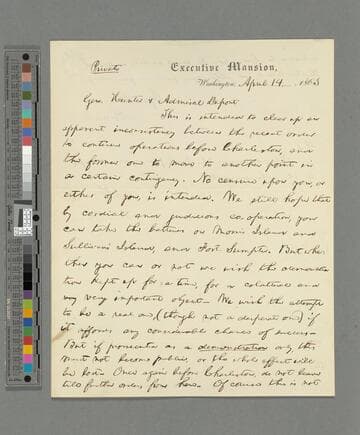 Private
Executive Mansion,
Washington, April 14, 1863
Gen. Hunter & Admiral Dupont
This is intended to clear up an
apparent inconsistency between the recent order
to continue operations before Charleston, and
the former one to move to another point in
a certain contingency. No censure upon you, or
either of you, is intended. We still hope that
by cordial and judicious co-operation, you
can take the batteries on Morris Island and
Sullivan's Island, and Fort Sumpter. But whe-
ther you can or not, we wish the demonstra-
tion kept up for a time, for a collateral and
very important object. We wish the attempt
to be a real one, (though not a desperate one) if
it affords any considerable chance of success.
But if prosecuted as a demonstration only, this
must not become public, or the whole effect will
be lost. Once again before Charleston, do not leave
till further orders from here. Of course this is not